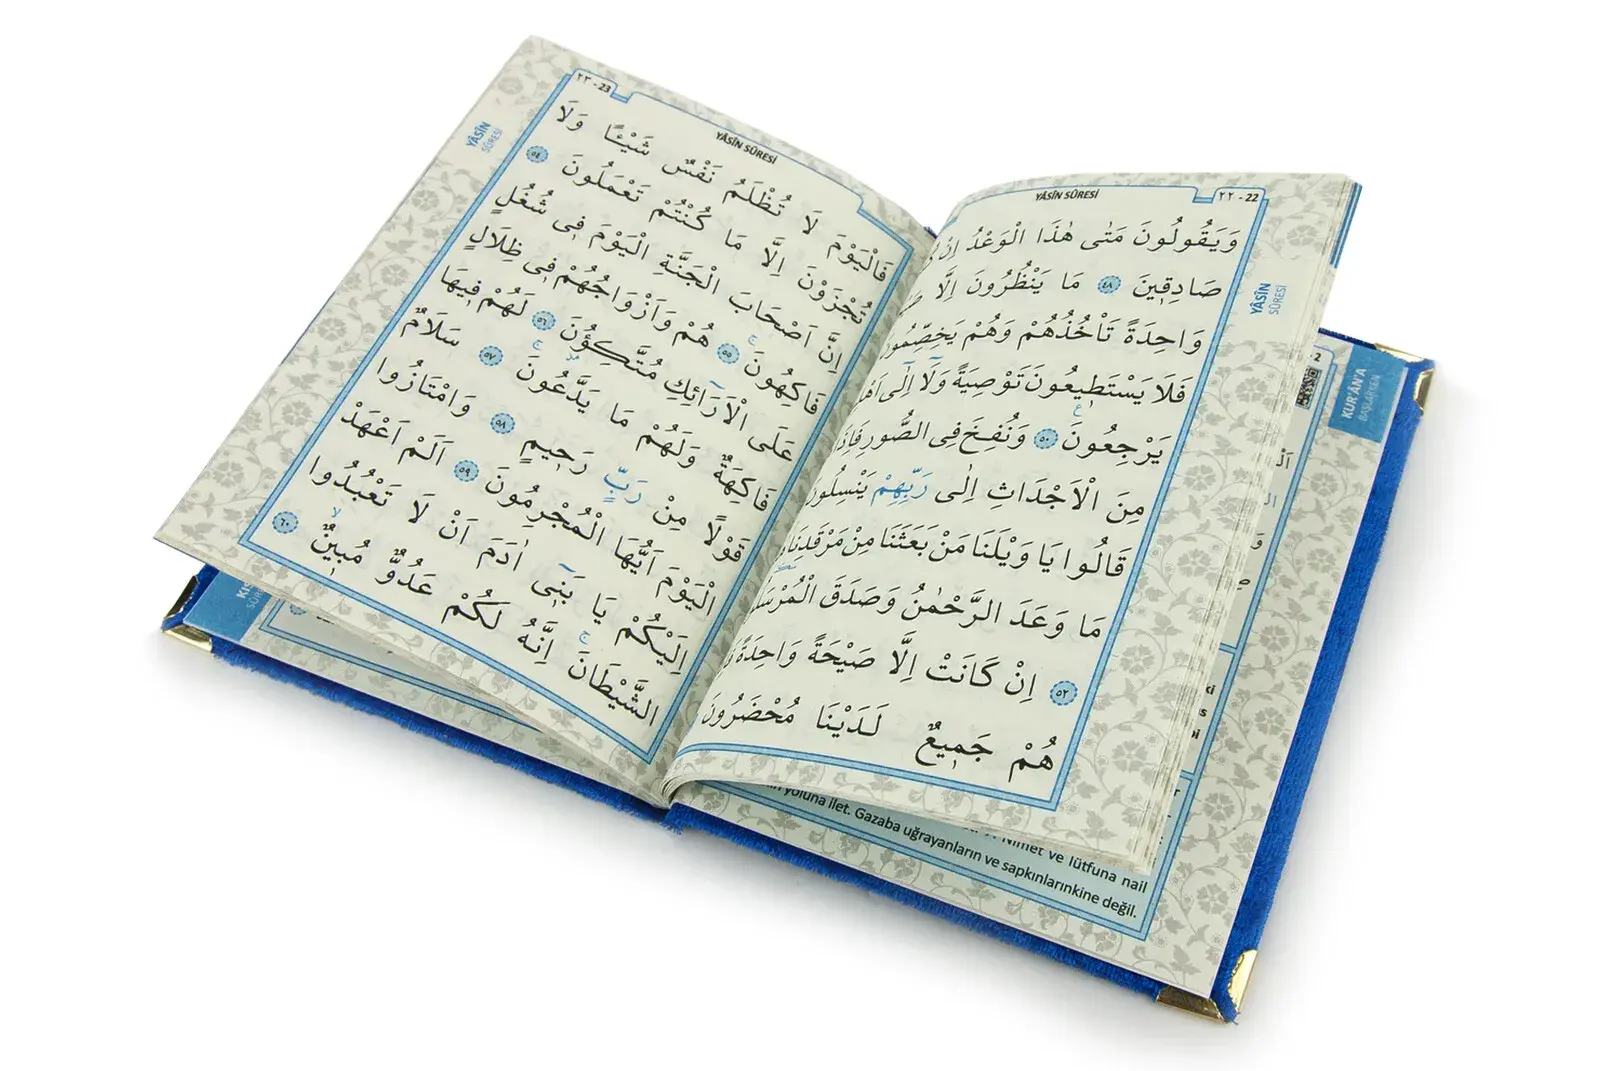 ٢٢ - 22
YÂSÎN SÛRESİ
وَيَقُولُونَ مَتٰى هٰذَا الْوَعْدُ اِنْ
صَادِقٖينَ ٤٨ مَا يَنْظُرُونَ اِلَّا
وَاحِدَةً تَاْخُذُهُمْ وَهُمْ يَخِصِّمُونَ
فَلَا يَسْتَطٖيعُونَ تَوْصِيَةً وَلَٓا اِلٰٓى
يَرْجِعُونَ ٥٠ وَنُفِخَ فِى الصُّورِ فَاِذَا
مِنَ الْاَجْدَاثِ اِلٰى رَبِّهِمْ يَنْسِلُونَ
قَالُوا يَا وَيْلَنَا مَنْ بَعَثَنَا مِنْ مَرْقَدِنَا
مَا وَعَدَ الرَّحْمٰنُ وَصَدَقَ
٥٢ اِنْ كَانَتْ اِلَّا صَيْحَةً وَاحِدَةً
هُمْ جَمٖيعٌ لَدَيْنَا مُحْضَرُونَ
YÂSÎN
SÛRESİ
٢٣ - 23
YÂSÎN SÛRESİ
فَالْيَوْمَ لَا تُظْلَمُ نَفْسٌ شَيْـًٔا وَلَا
تُجْزَوْنَ اِلَّا مَا كُنْتُمْ تَعْمَلُونَ ٥٤
اِنَّ اَصْحَابَ الْجَنَّةِ الْيَوْمَ فٖى شُغُلٍ
فَاكِهُونَ ٥٥ هُمْ وَاَزْوَاجُهُمْ فٖى ظِلَالٍ
عَلَى الْاَرَٓائِكِ مُتَّكِؤُ۫نَ ٥٦ لَهُمْ فٖيهَا
فَاكِهَةٌ وَلَهُمْ مَا يَدَّعُونَ ٥٧ سَلَامٌ
قَوْلًا مِنْ رَبٍّ رَحٖيمٍ ٥٨ وَامْتَازُوا
الْيَوْمَ اَيُّهَا الْمُجْرِمُونَ ٥٩ اَلَمْ اَعْهَدْ
اِلَيْكُمْ يَا بَنٖٓى اٰدَمَ اَنْ لَا تَعْبُدُوا
الشَّيْطَانَ اِنَّهُ لَكُمْ عَدُوٌّ مُبٖينٌ ٦٠
YÂSÎN
SÛRESİ
KUR'ÂN'A
BAŞLARKEN
2
yoluna ilet. Gazaba uğrayanların ve sapkınlarınkine değil.
Nimet ve lütfuna nail